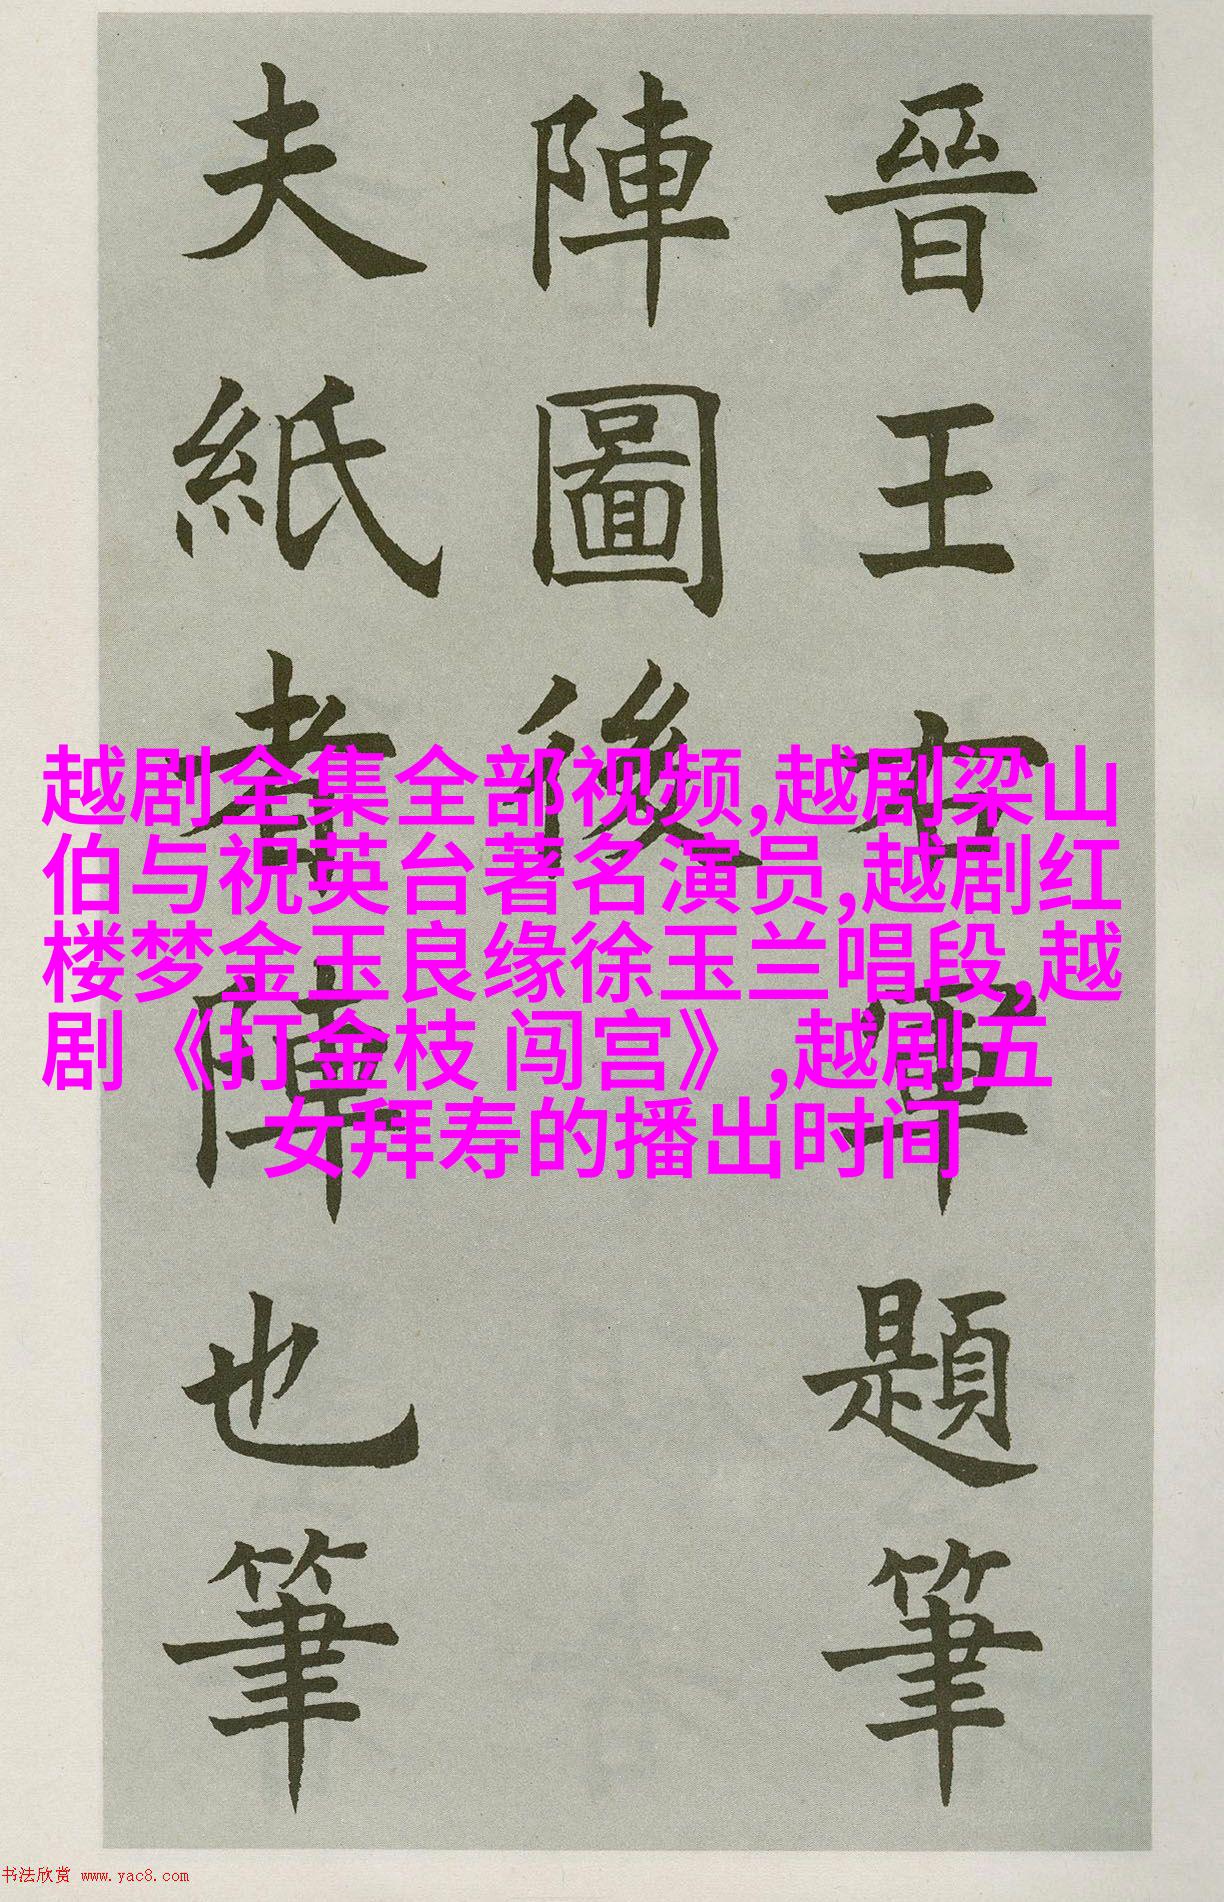 晉王右軍題筆
陣圖後
夫紙者陣也筆
越剧全集全部视频,越剧梁山
伯与祝英台著名演员,越剧红
楼梦金玉良缘徐玉兰唱段,越
剧《打金枝 闯宫》,越剧五
女拜寿的播出时间
书法欣赏 www.yac8.com